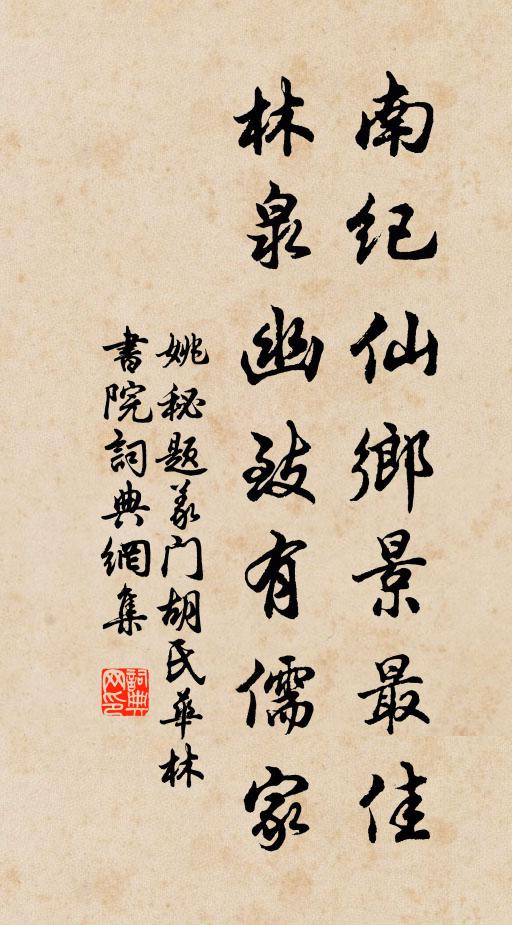 南纪仙鄉景最佳
林泉幽致有儒家
姚秘题义门胡氏華林
書院詞典網集
詞典网印